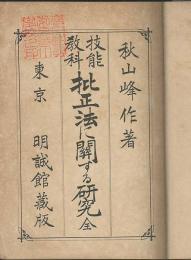 秋山峰作著
技能
教科
批正法に關する研究 全
東京 明誠館藏版